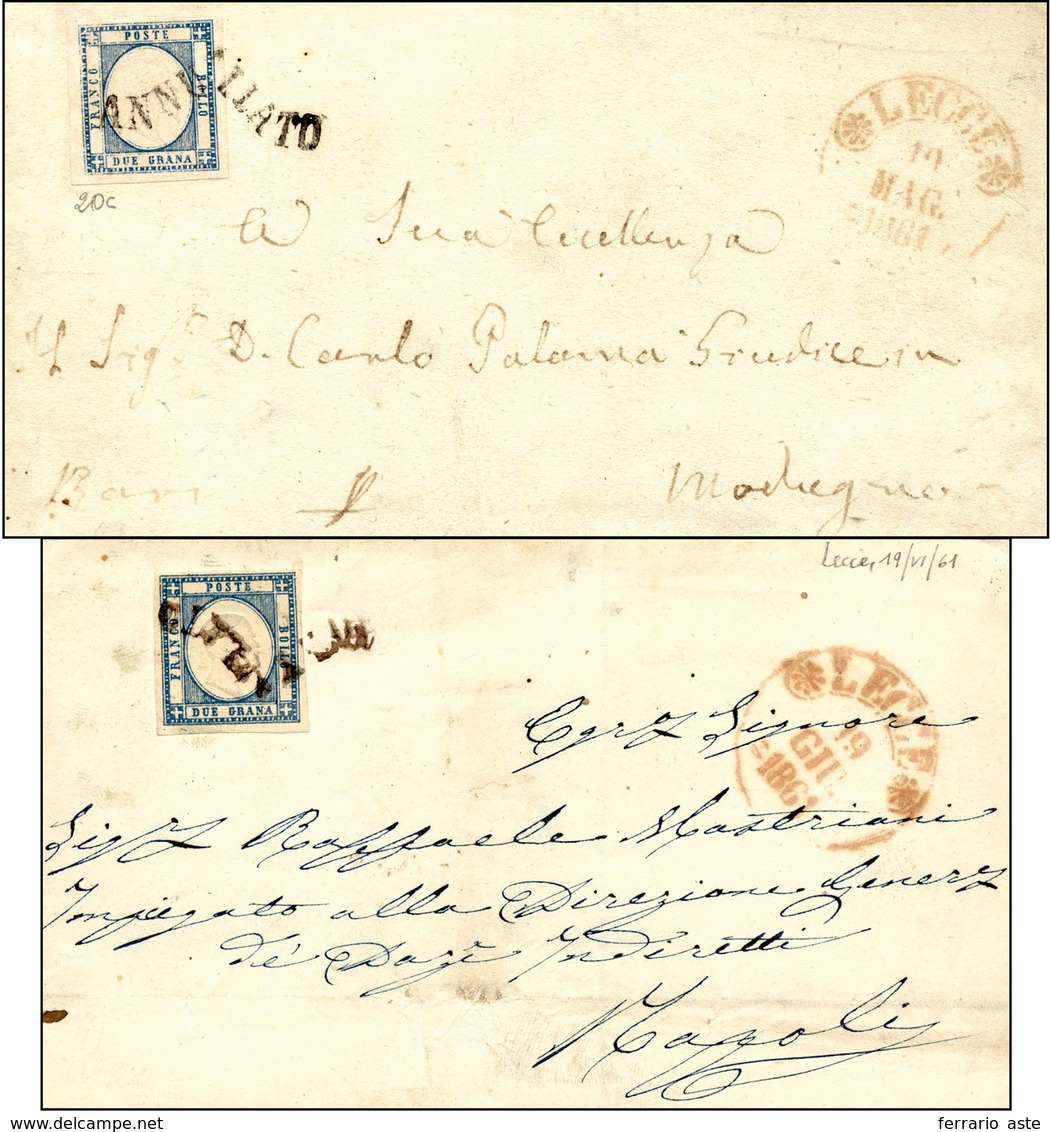 POSTE
FRANCO
BOLLO
DUE GRANA
ANNULLATO
20c
LECCE
19
MAG.
1861
A Sua Eccellenza
Il Sigr. D. Carlo Palama Giudice in
Bari Modugno
Lecce, 19/VI/61
POSTE
FRANCO
BOLLO
DUE GRANA
LECCE
19
GIU
1861
Egr. Signore
Sigr Raffaele Mastriani
Impiegato alla Direzione Gener
de' Dazi Indiretti
Napoli
ferrario aste